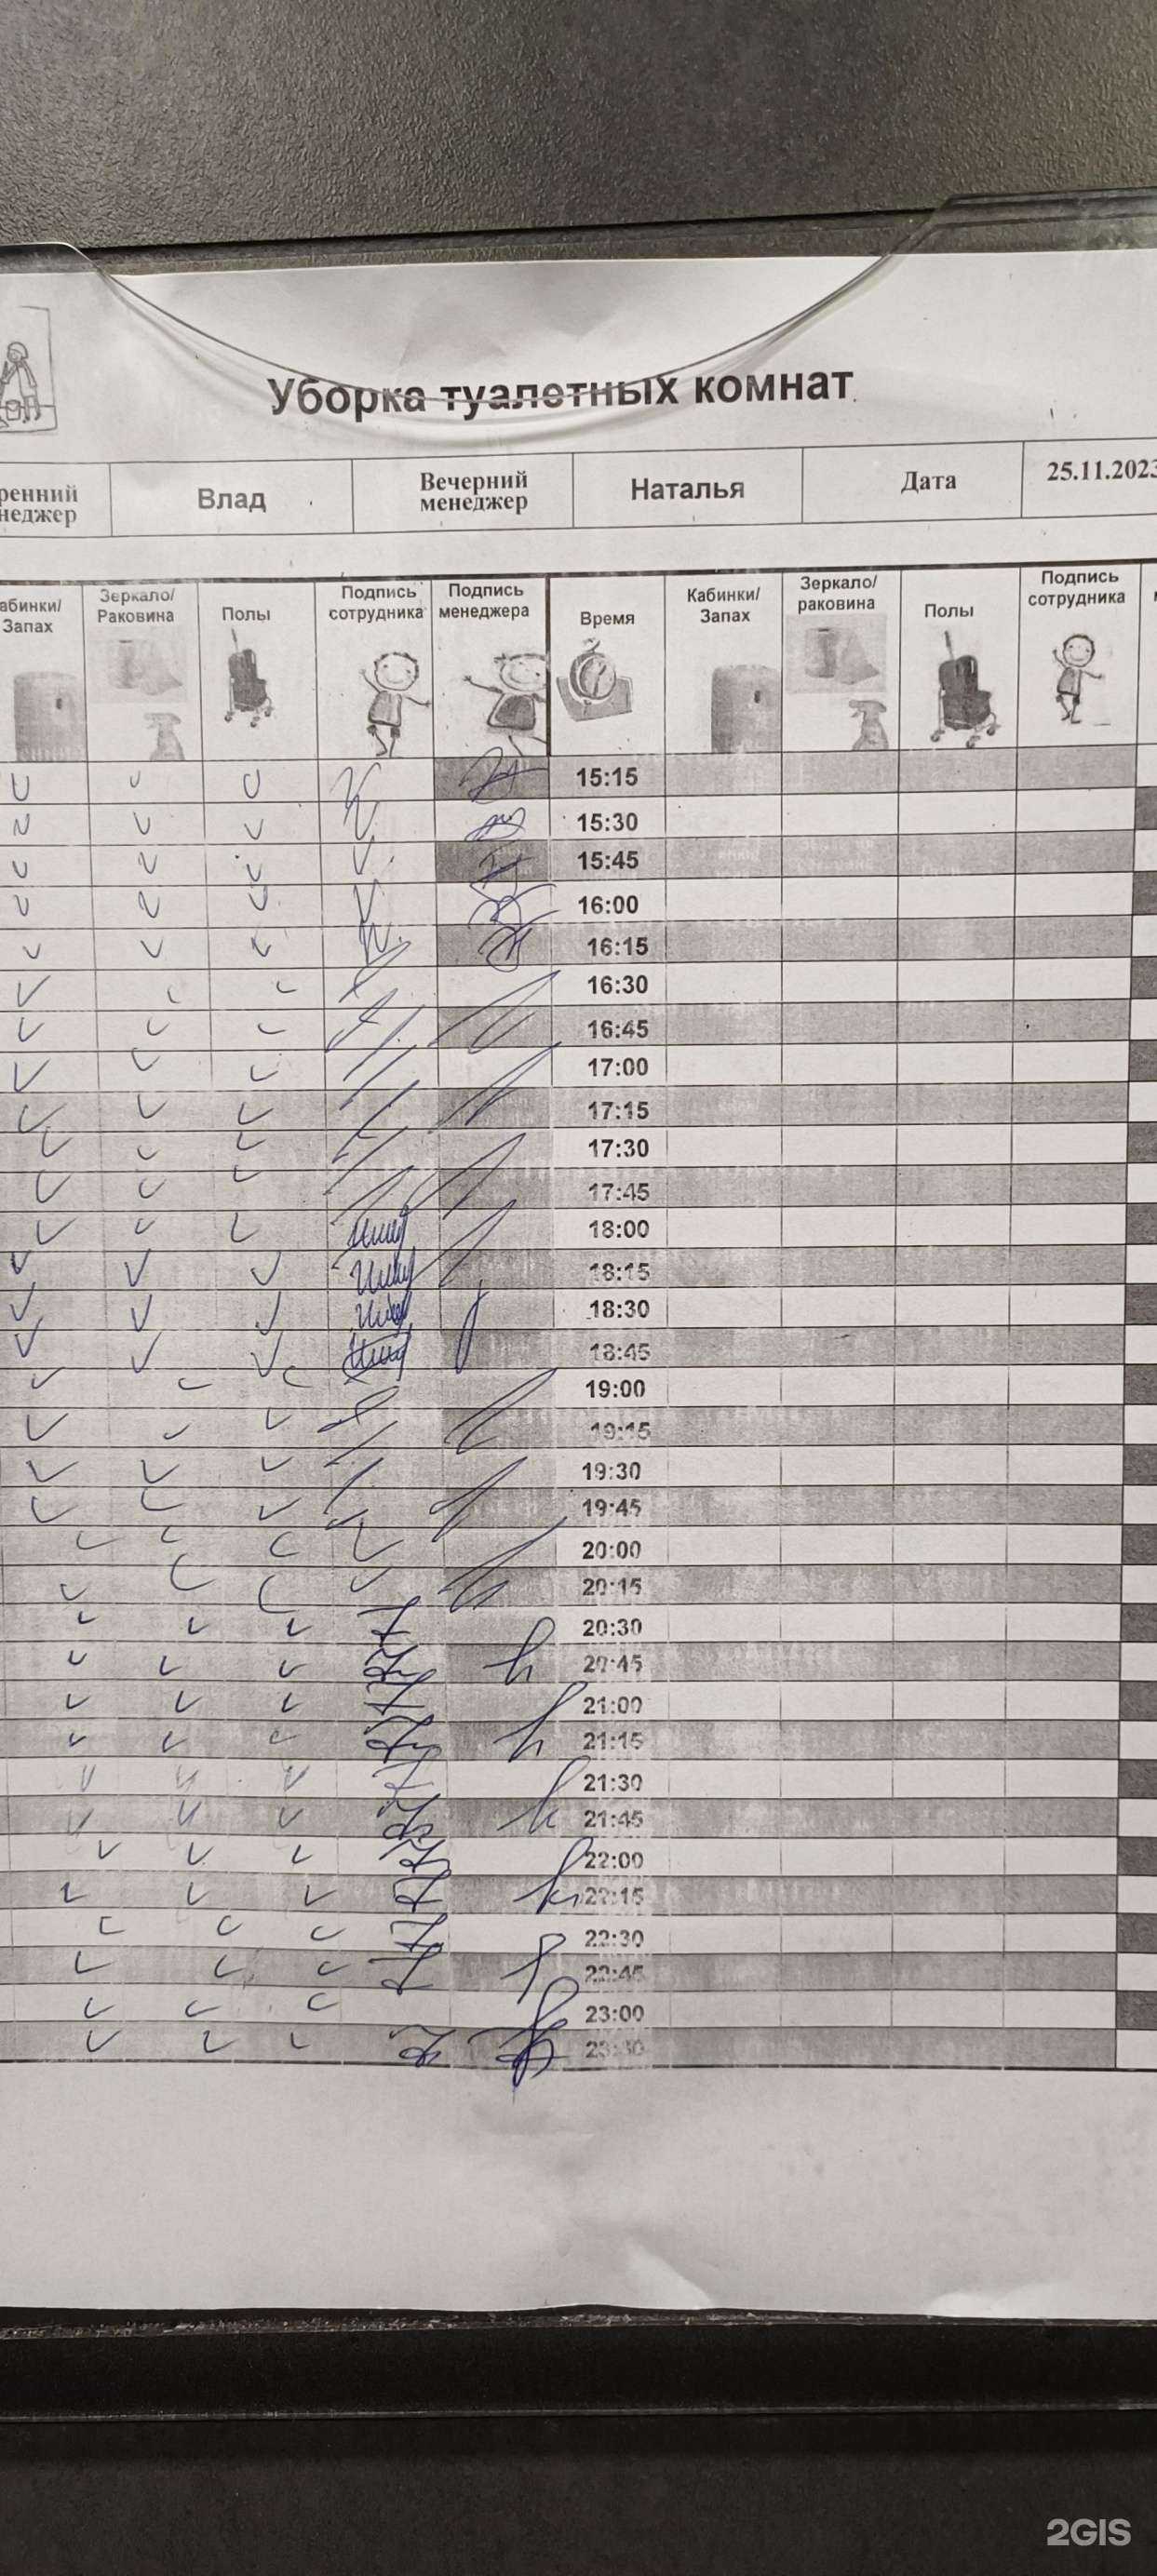 Уборка туалетных комнат
ренний неджер Влад Вечерний менеджер Наталья Дата 25.11.2023
абинки/ Запах Зеркало/ Раковина Полы Подпись сотрудника Подпись менеджера Время Кабинки/ Запах Зеркало/ раковина Полы Подпись сотрудника
15:15
15:30
15:45
16:00
16:15
16:30
16:45
17:00
17:15
17:30
17:45
18:00
18:15
18:30
18:45
19:00
19:15
19:30
19:45
20:00
20:15
20:30
20:45
21:00
21:15
21:30
21:45
22:00
22:15
22:30
22:45
23:00
2GIS